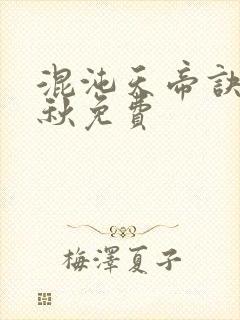 混沌天帝訣
秋免費
梅澤夏子